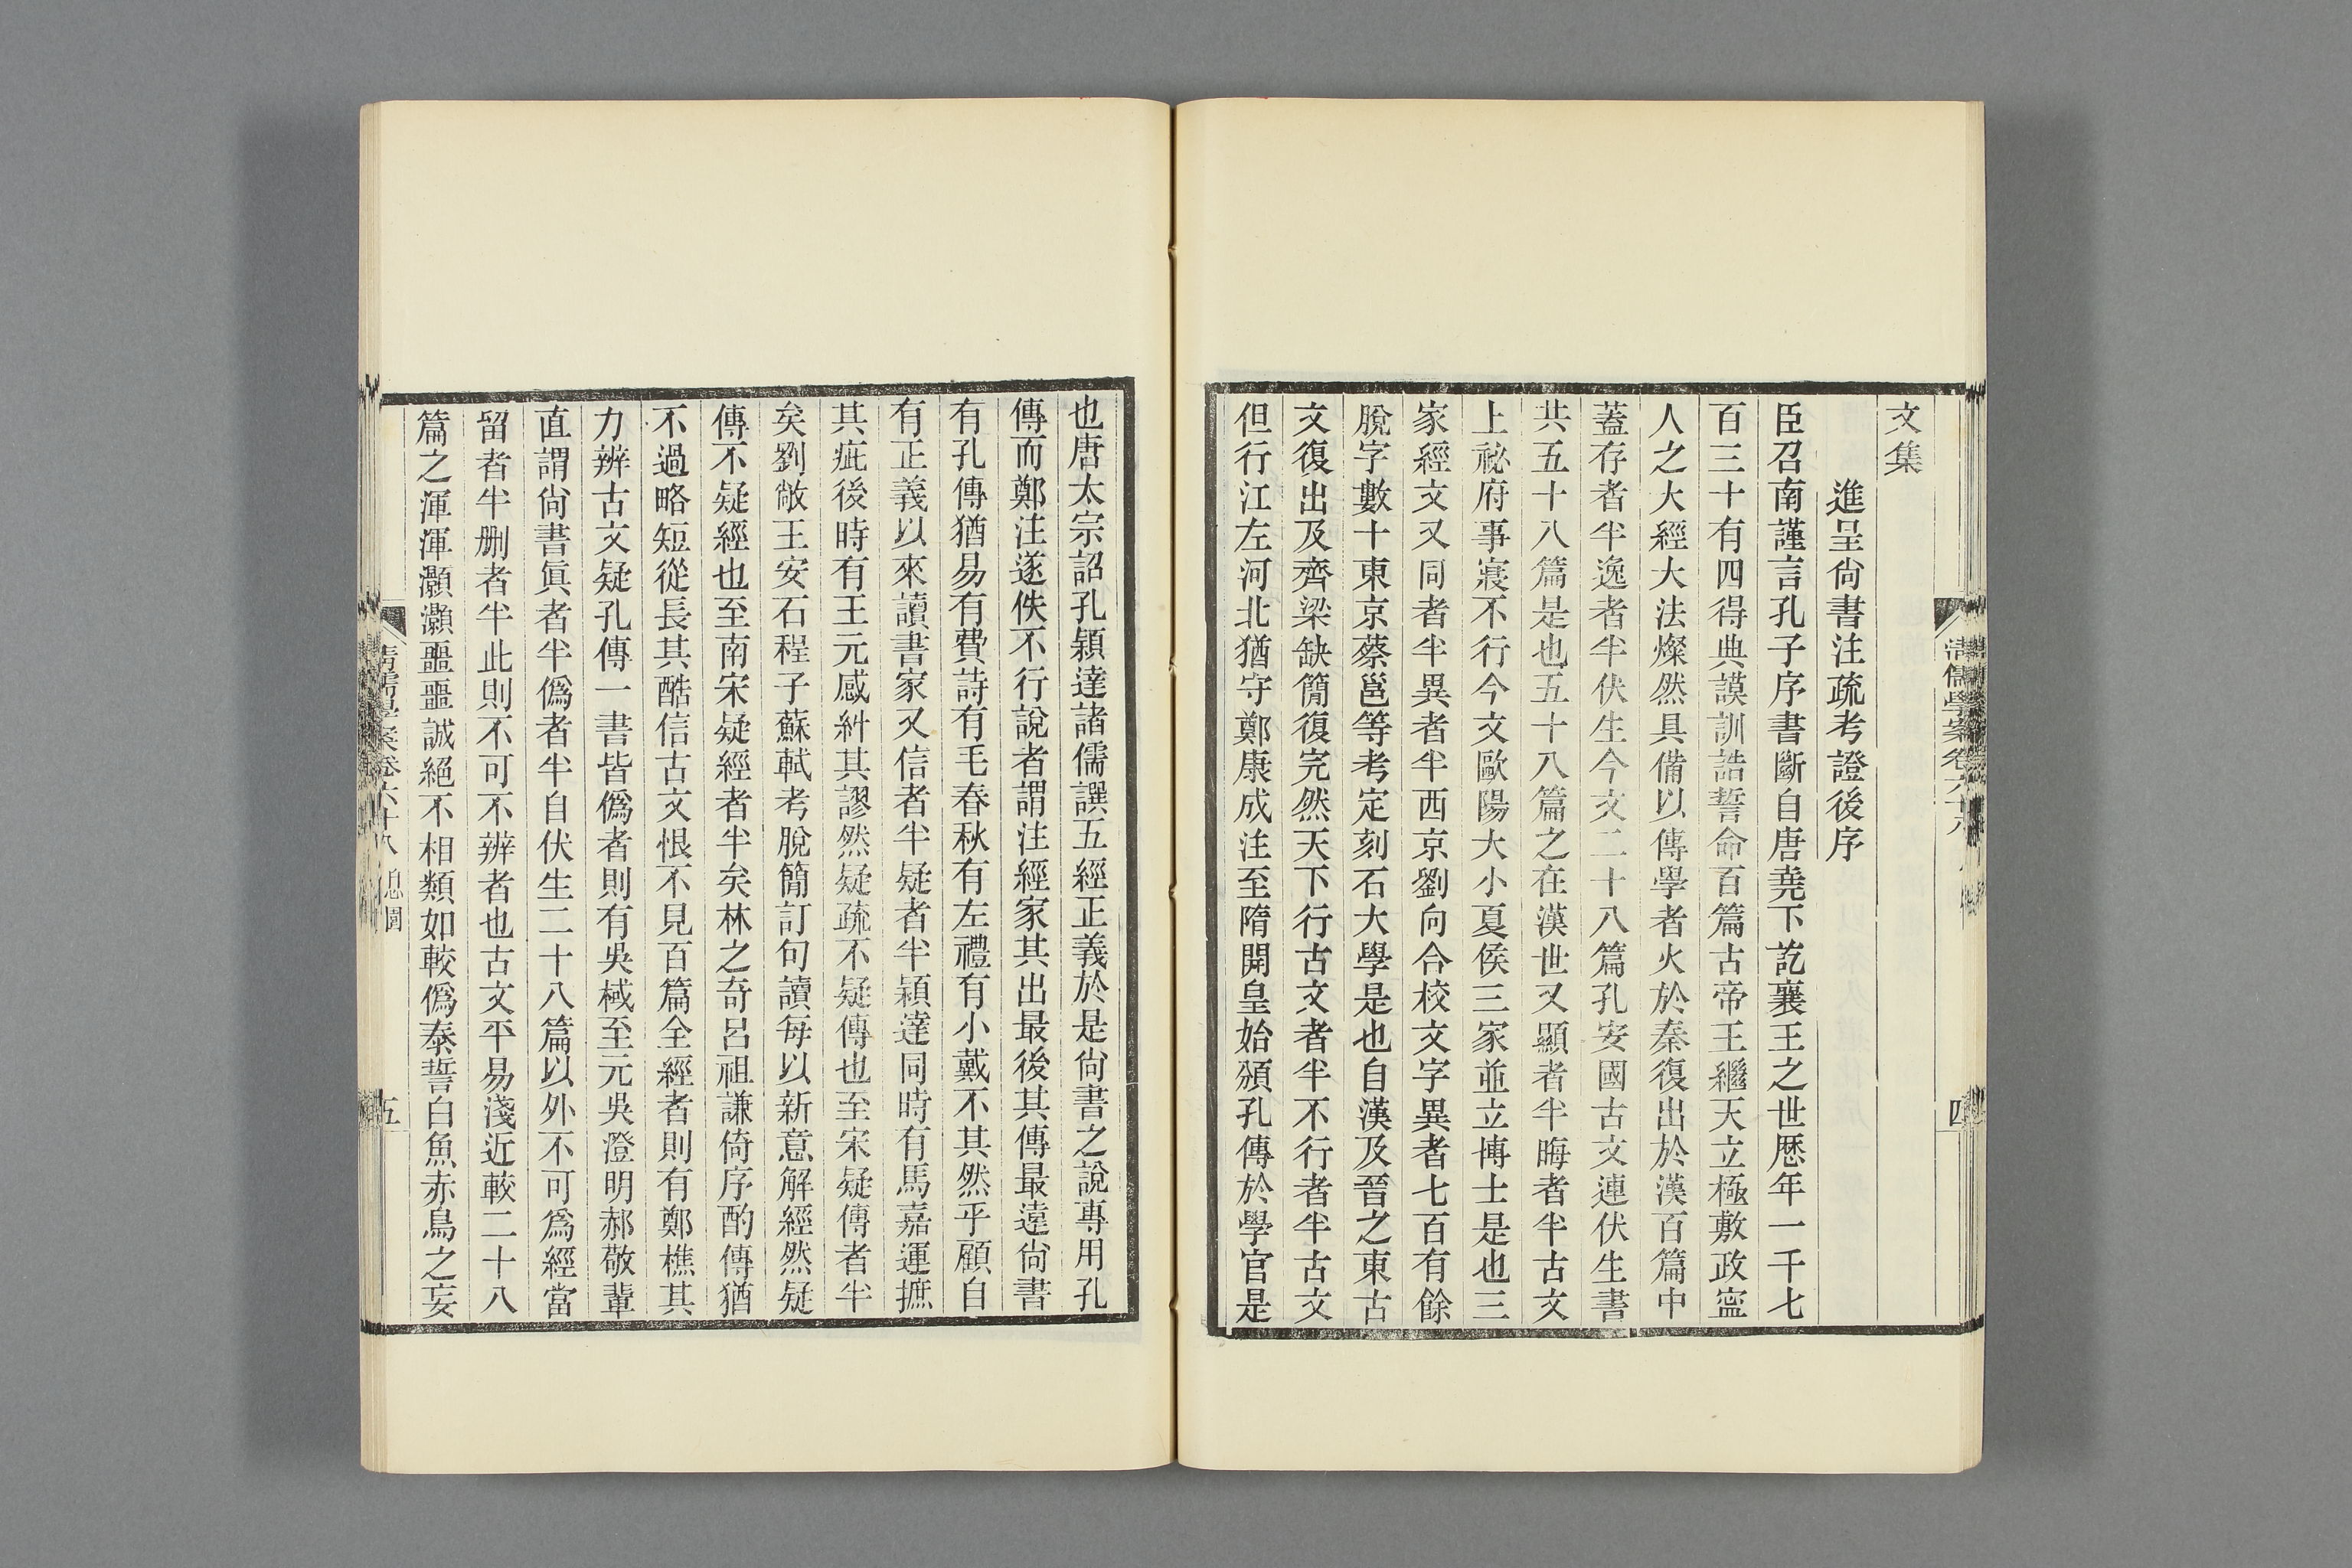 文集
進呈尙書注疏考證後序
臣召南謹言孔子序書斷自唐堯下訖襄王之世歷年一千七
百三十有四得典謨訓誥誓命百篇古帝王繼天立極敷政寍
人之大經大法燦然具備以傳學者火於秦復出於漢百篇中
蓋存者半逸者半伏生今文二十八篇孔安國古文連伏生書
共五十八篇是也五十八篇之在漢世又顯者半晦者半古文
上祕府事寢不行今文歐陽大小夏侯三家並立博士是也三
家經文又同者半異者半西京劉向合校文字異者七百有餘
脫字數十東京蔡邕等考定刻石大學是也自漢及晉之東古
文復出及齊梁缺簡復完然天下行古文者半不行者半古文
但行江左河北猶守鄭康成注至隋開皇始頒孔傳於學官是
也唐太宗詔孔穎達諸儒譔五經正義於是尙書之說專用孔
傳而鄭注遂佚不行說者謂注經家其出最後其傳最遠尙書
有孔傳猶易有費詩有毛春秋有左禮有小戴不其然乎顧自
有正義以來讀書家又信者半疑者半穎達同時有馬嘉運摭
其疵後時有王元感糾其謬然疑疏不疑傳也至宋疑傳者半
矣劉敞王安石程子蘇軾考脫簡訂句讀每以新意解經然疑
傳不疑經也至南宋疑經者半矣林之奇呂祖謙倚序酌傳猶
不過略短從長其酷信古文恨不見百篇全經者則有鄭樵其
力辨古文疑孔傳一書皆僞者則有吳棫至元吳澄明郝敬輩
直謂尙書眞者半僞者半自伏生二十八篇以外不可爲經當
留者半刪者半此則不可不辨者也古文平易淺近較二十八
篇之渾渾灝灝噩噩誠絕不相類如較僞泰誓白魚赤烏之妄
清儒學案卷六十八
四
五